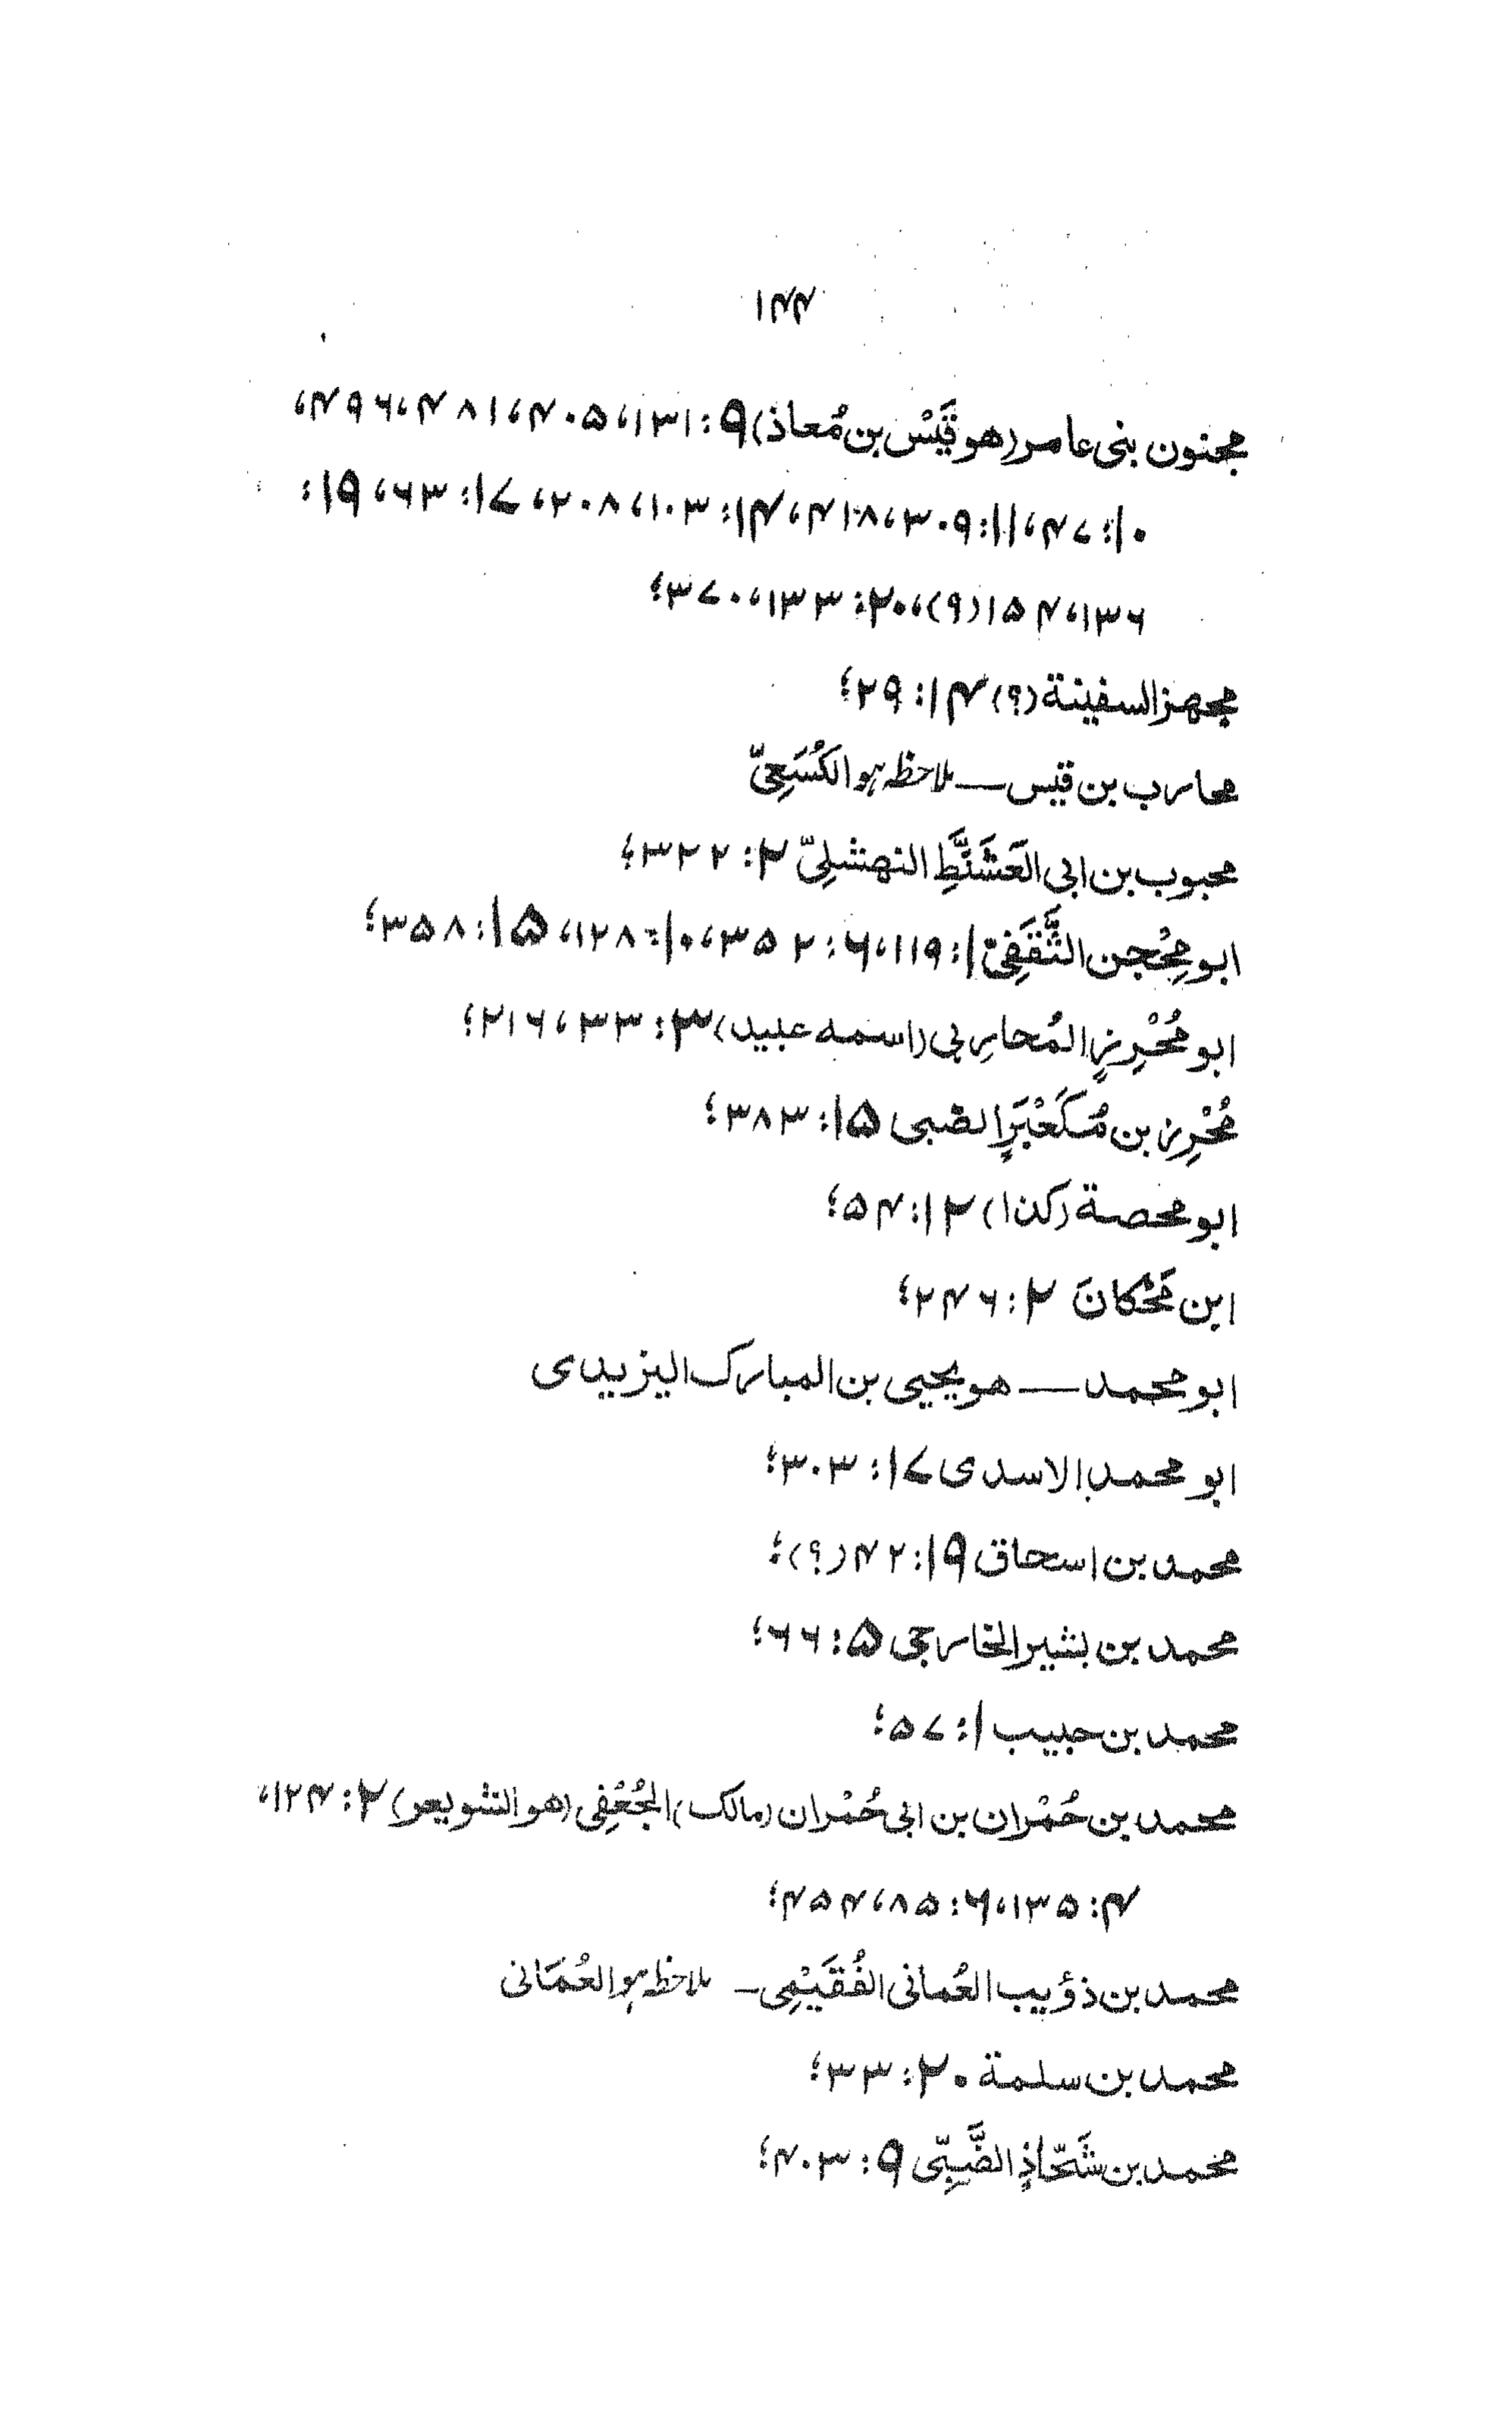 ۱۴۴
مجنون بنی عامر (هو قَیْس بن مُعاذ) ۹: ۱۳۱، ۴۰۵، ۴۸۱، ۴۹۶،
۱۰: ۴۷، ۱۱: ۳۰۹، ۴۱۸، ۱۴: ۱۰۳، ۲۰۸، ۱۷: ۶۳، ۱۹:
۱۳۶، ۱۵۴ (۹)، ۲۰: ۱۳۳، ۳۷۰؛
مجهز السفینة (؟) ۱۴: ۲۹؛
محارب بن قیس — ملاحظہ ہو الکُسَعِیّ
محبوب بن ابی العَشَنَّطِ النهشلیّ ۲: ۳۲۲؛
ابو مِحْجن الثَّقَفِیّ ۱: ۱۱۹، ۶: ۳۵۲، ۱۰: ۱۲۸، ۱۵: ۳۵۸؛
ابو مُحْرِزٍ المُحارِبی (اسمه عبید) ۳: ۳۳، ۲۱۶؛
مُحْرِز بن مُکَعْبَرٍ الضبی ۱۵: ۳۸۳؛
ابو محصة (کذا) ۱۲: ۵۴؛
ابن مَحْکانَ ۲: ۲۴۶؛
ابو محمد — هو یحیی بن المبارک الیزیدی
ابو محمد الاسدی ۱۷: ۳۰۳؛
محمد بن اسحاق ۱۹: ۴۲ (؟)؛
محمد بن بشیر الخارجی ۵: ۶۶؛
محمد بن حبیب ۱: ۵۷؛
محمد بن حُمْران بن ابی حُمْران (مالک) الجُعْفِی (هو الشویعر) ۲: ۱۲۴،
۴: ۱۳۵، ۶: ۸۵، ۴۵۴؛
محمد بن ذؤیب العُمانی الفُقَیْمِی — ملاحظہ ہو العُمَانی
محمد بن سلمة ۲۰: ۳۳؛
محمد بن شَحّاذٍ الضَّبِّی ۹: ۴۰۳؛